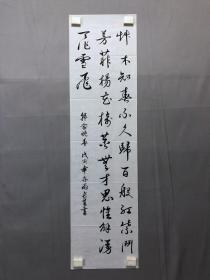 艸木知春不久歸百般紅紫鬥
芳菲楊花榆莢無才思惟解漫
天作雪飛
韓愈晚春 戊寅 書